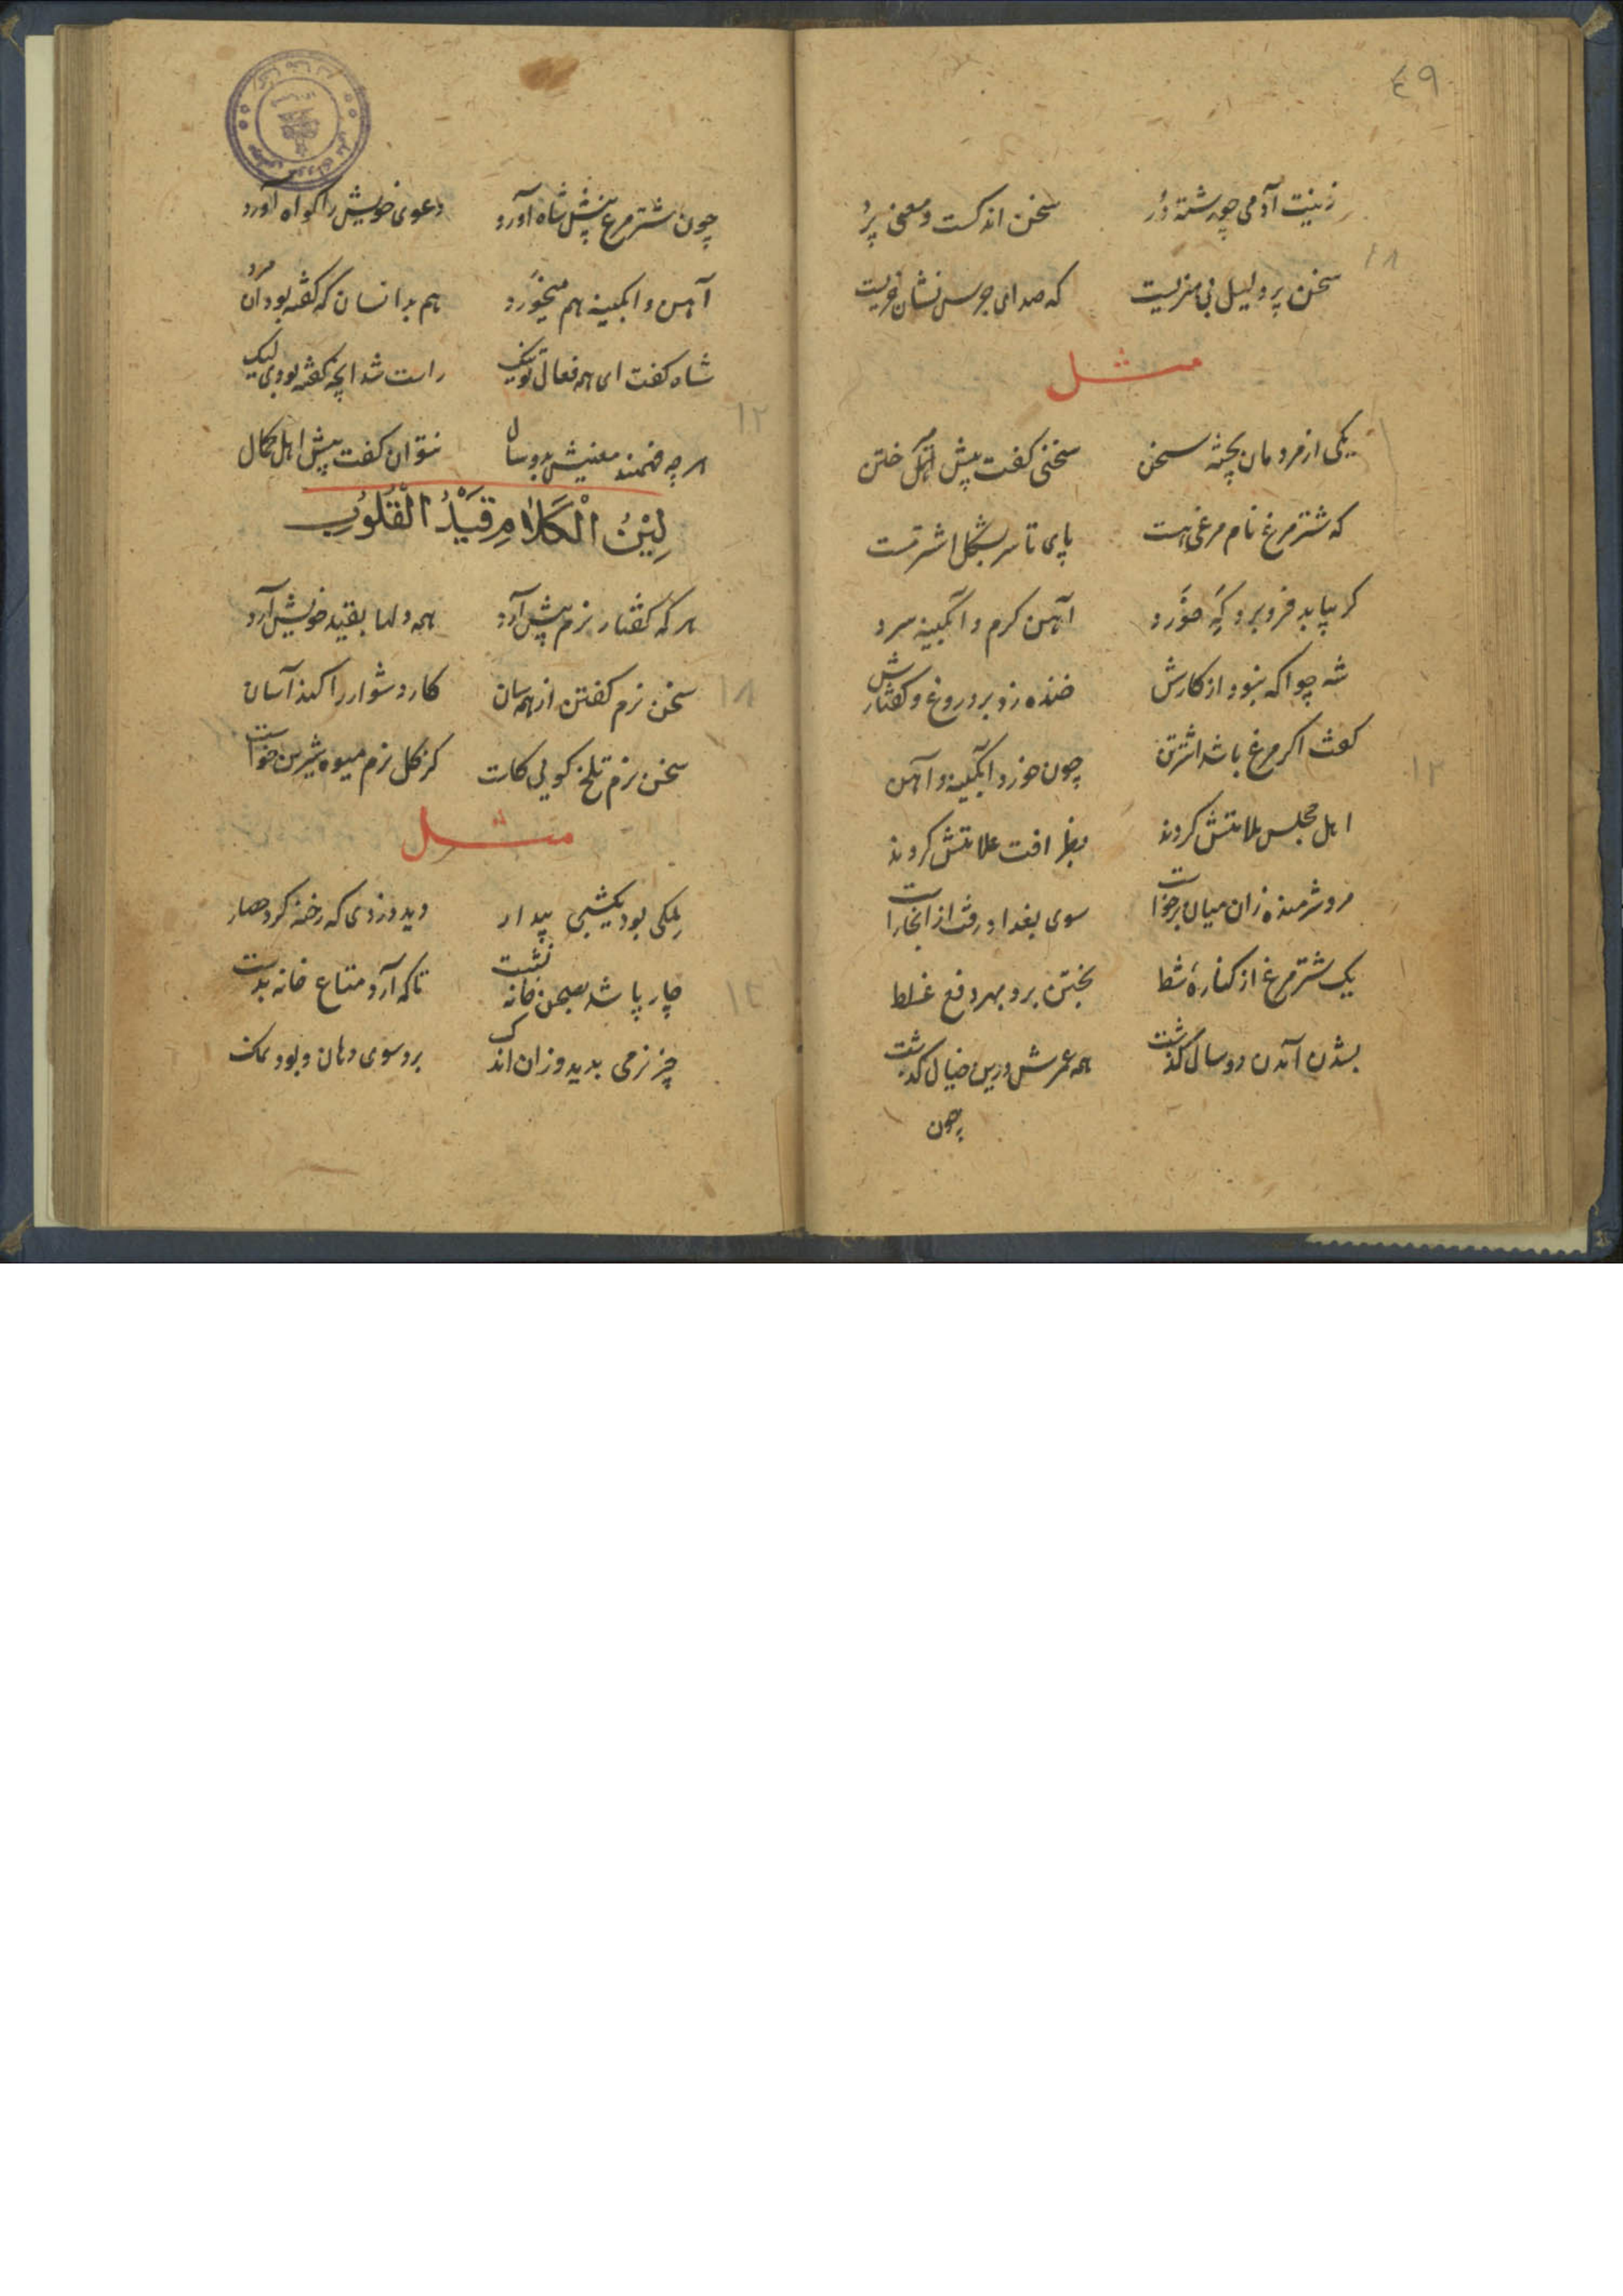 ٤٩
زینت آدمی چو رشتهٔ دُر    سخن اندکست و معنی پُر
سخن پر دلیل بی مغزیست    که صدای جرس نشان خریست
مثل
یکی از مردمان پخته سخن    سخنی گفت پیش ملک ختن
که شتر مرغ نام مرغی هست    پای تا سر بشکل اشتر مست
کر بیابد فرو برد که خورد    آهن کرم و آبکینه سرد
شه چو آکه نبود از کارش    خنده زد بر دروغ و کفتارش
کفت اکر مرغ باشد اشتر تن    چون خورد آبکینه و آهن
اهل مجلس ملامتش کردند    بظرافت علامتش کردند
مرد شرمنده زان میان برخواست    سوی بغداد رفت از آنجا راست
یک شتر مرغ از کنارهٔ شط    بختن برد بهر دفع غلط
بشدن آمدن دو سال کذشت    همه عمرش درین خیال کذشت
چون
چون شتر مرغ پیش شاه آورد    دعوی خویش را کواه آورد
آهن و آبکینه هم میخورد    هم بدانسان که کفته بود آن مرد
شاه کفت ای همه فعال تو نیک    راست شد آنچه کفته بودی لیک
هر چه فهمند معنیش بدو سال    نتوان کفت پیش اهل کمال
لِیْنُ الْكَلَامِ قَیْدُ الْقُلُوبِ
هر که کفتار نرم پیش آرد    همه دلها بقید خویش آرد
سخن نرم کفتن از همه سان    کار دشوار را کند آسان
سخن نرم تلخ کویی کاست    کز کل نرم میوه شیرین خواست
مثل
ملکی بود یکشبی بیدار    دید دزدی که رخنه کرد حصار
چار پا شد بصحن خانه نشست    تا که آرد متاع خانه بدست
چیز نرمی بدید و زان اندک    برد سوی دهان و بود نمک